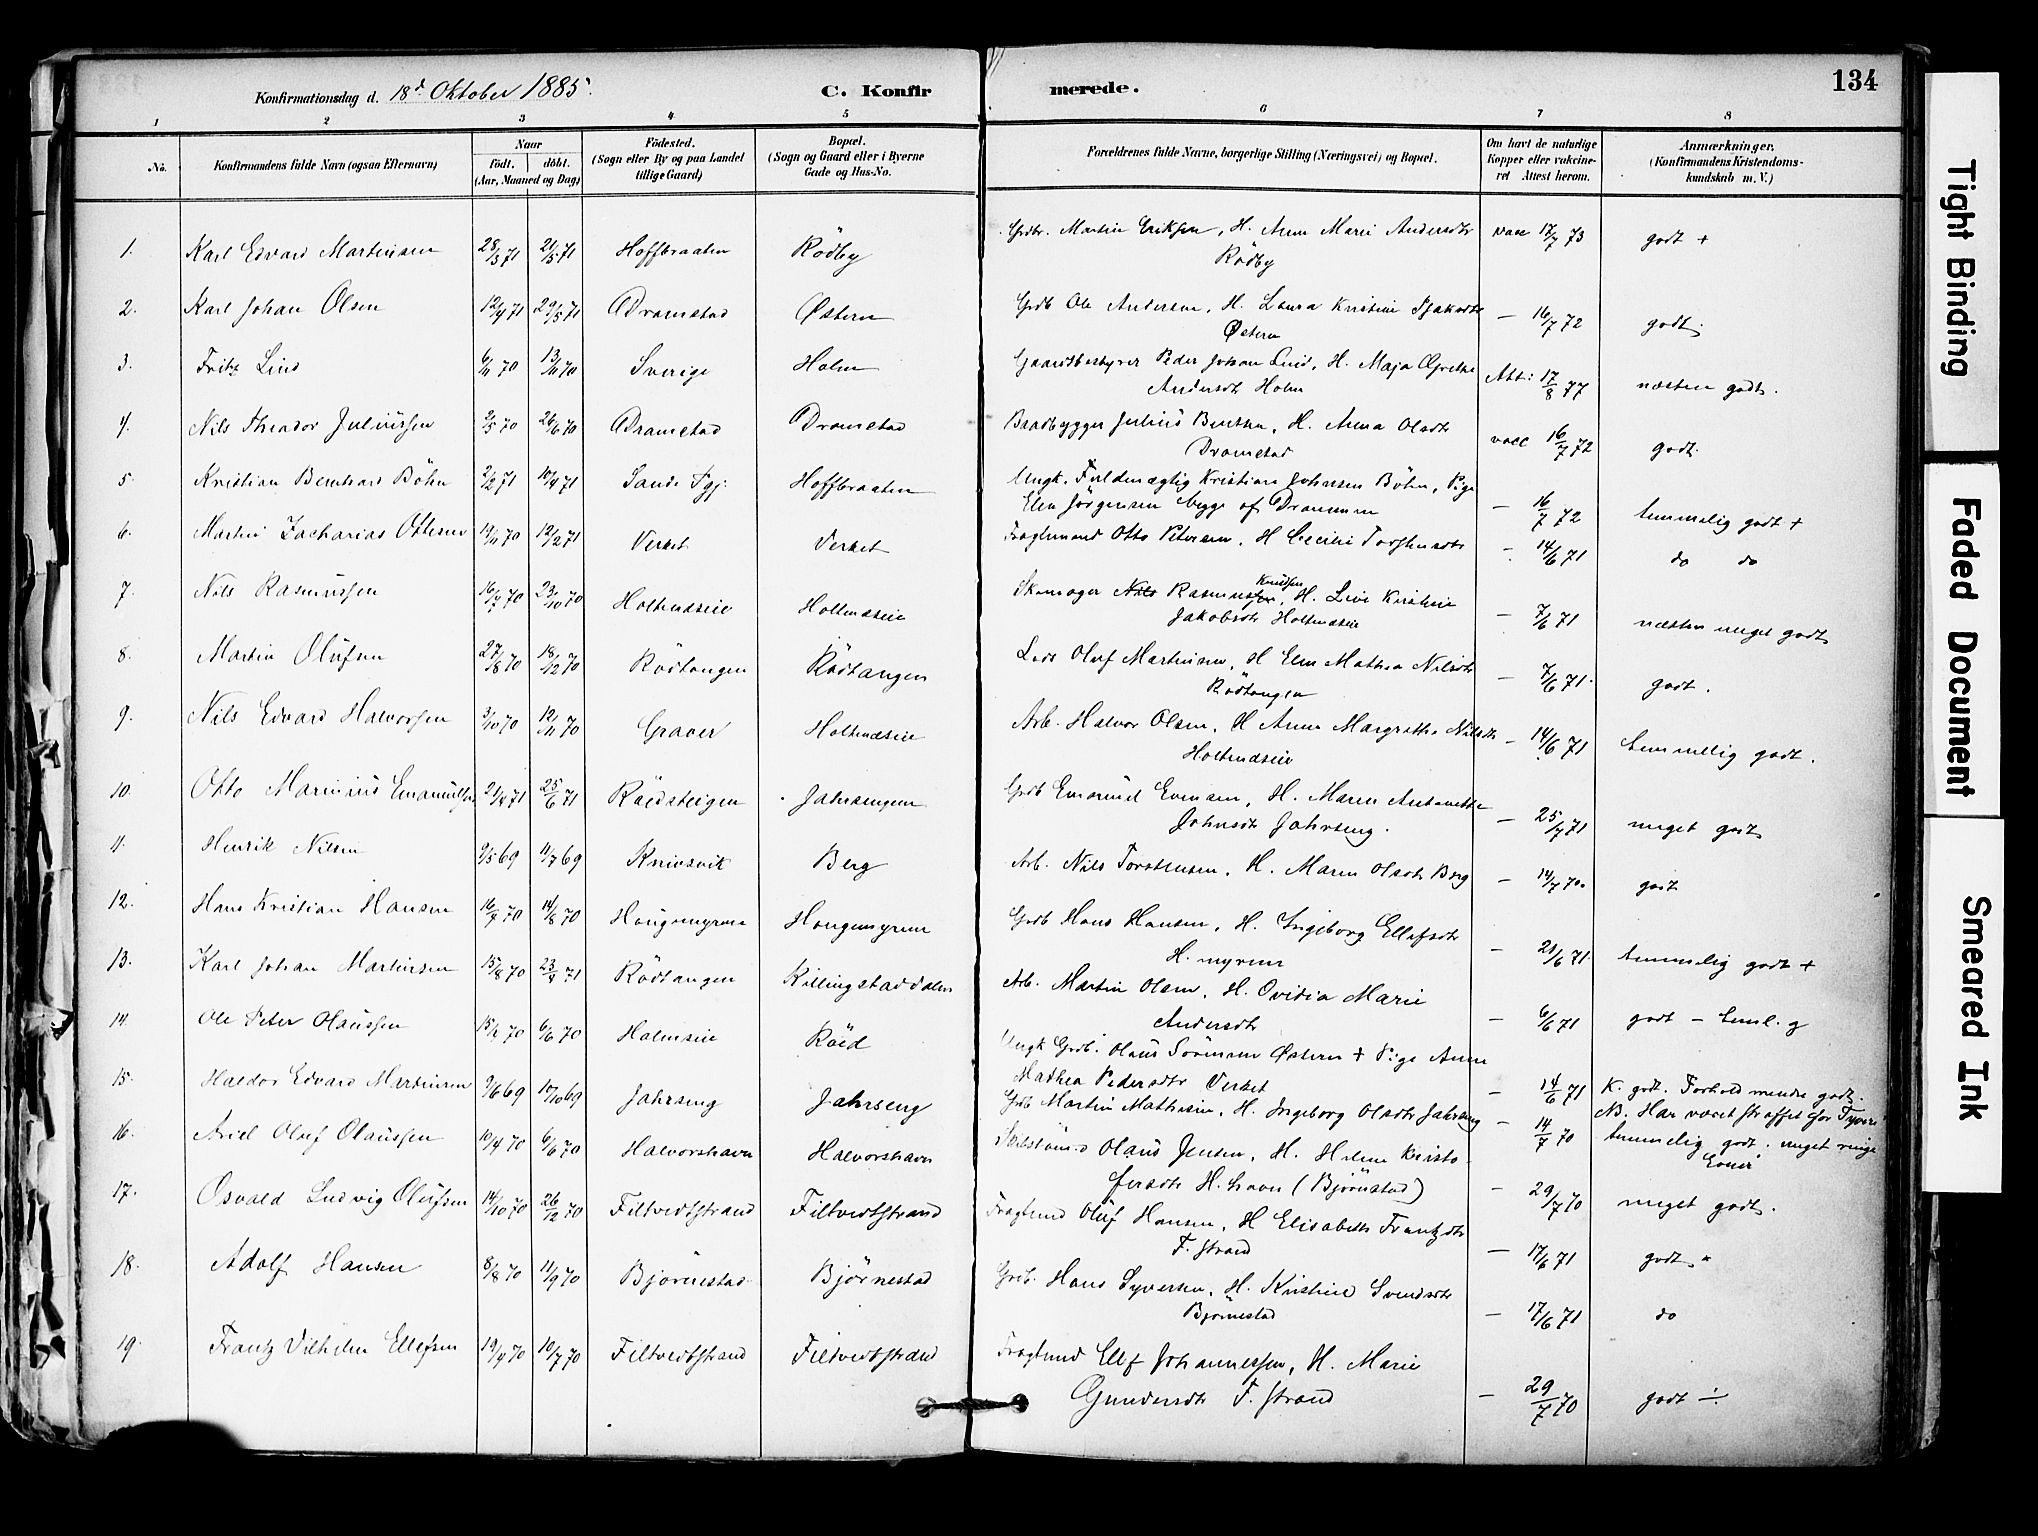 Konfirmationsdag d. 18d Oktober 1885. C. Konfirmerede. 134
1 2 3 4 5 6 7 8
No. Konfirmandens fulde Navn (ogsaa Efternavn) Naar födt. döbt. (Aar, Maaned og Dag) Födested. (Sogn eller By og paa Landet tillige Gaard) Bopæl. (Sogn og Gaard eller i Byerne Gade og Hus-No. Forældrenes fulde Navne, borgerlige Stilling (Næringsvei) og Bopæl. Om havt de naturlige Kopper eller vakcineret Attest herom. Anmærkninger. (Konfirmandens Kristendomskundskab m. V.)
1. Karl Edvard Martinsen 28/3 71 21/5 71 Hoffbraaten Rödby Grdbr. Martin Eriksen, H. Anne Marie Andersdtr vacc 17/7 73 godt +
Rödby
2. Karl Johan Olsen 12/4 71 29/5 71 Dramstad Østern Grdb Ole Andersen, H. Laura Kristine — 16/7 72 godt.
Østern
3. Fritz Lind 6/11 70 13/11 70 Sverige Holm Gaardsbestyrer Peder Johan Lind, H. Maja Grethe Att: 17/8 77 næsten godt.
Andersdt Holm
4. Nils Theodor Juliussen 2/5 70 26/6 70 Dramstad Dramstad Baadbygger Julius Bentsen, H. Anna Olsdtr vacc 16/7 72 godt.
Dramstad
5. Kristian Bernhard Böhn 2/2 71 10/4 71 Sande Pgj. Hoffbraaten Ungk. Fuldmægtig Kristian Johnsen Böhn, Pige
Elen Jörgensen begge af Drammen — 16/7 72 temmelig godt +
6. Martin Zacharias Ottesen 19/11 70 12/2 71 Verket Verket Fragtemand Otto Petersen, H Cecilie Torstensdtr — 14/6 71 do do
7. Nils Rasmussen 16/7 70 23/10 70 Holtnæseie Holtnæseie Skomager Nils Rasmussen Knudsen, H. Live Kirstine
Jakobsdtr Holtnæseie — 7/6 71 næsten meget godt
8. Martin Olufsen 27/8 70 18/12 70 Rödtangen Rödtangen Lods Oluf Martinsen, H Elen Mathea Nilsdtr — 7/6 71. godt.
Rödtangen
9. Nils Edvard Halvorsen 3/10 70 12/11 70 Graver Holtnæseie Arb. Halvor Olsen, H Anne Margrethe Nilsdtr — 14/6 71 temmelig godt.
Holtnæseie
10. Otto Marinius Emanuelsen 21/4 71 25/6 71 Röedsteigen Jahrsengen Grdb Emanuel Evensen, H. Maren Antonette
Johnsdt Jahrseng. — 25/7 71 meget godt
11. Henrik Nilsen 9/5 69 11/7 69 Knivsvik Berg Arb. Nils Torstensen, H. Maren Olsdtr Berg — 14/7 70. godt
12. Hans Kristian Hansen 16/7 70 14/8 70 Hougenmyren Hougenmyren Grdb Hans Hansen, H. Ingeborg Ellefsdtr
H. myren — 21/6 71. temmelig godt +
13. Karl Johan Martinsen 15/8 70 23/4 71 Rödtangen Killingstaddalen Arb. Martin Olsen, H. Ovidia Marie
Andersdtr — 6/6 71 godt — teml. g
14. Ole Peter Olaussen 15/4 70 6/6 70 Holmseie Röed Ungk Grdb. Olaus Sörensen Østern + Pige Anne
Mathea Pedersdtr Verket — 14/6 71 K. godt. Forhold mindre godt.
15. Haldor Edvard Martinsen 9/6 69 17/10 69 Jahrseng Jahrseng Grdb Martin Mathisen, H. Ingeborg Olsdtr Jahrseng — 14/7 70 NB. Har været straffet for Tyveri
16. Ariel Oluf Olaussen 10/4 70 6/6 70 Halvorshavn Halvorshavn Olaus Jensen, H. Helene Kristo- temmelig godt. meget ringe
Evner
fersdtr H. havn (Björnstad) — 29/7 70
17. Osvald Ludvig Olufsen 14/10 70 26/12 70 Filtvedtstrand Filtvedtstrand Fragtmd Oluf Hansen, H Elisabeth Frantzdtr meget godt.
F. strand — 17/6 71
18. Adolf Hansen 8/8 70 11/9 70 Bjørnestad Bjørnestad Grdb. Hans Syversen, H. Kristine Svendsdtr godt.
Bjørnestad — 17/6 71 do
19. Frantz Vilhelm Ellefsen 19/4 70 10/7 70 Filtvedtstrand Filtvedtstrand Fragtmd Ellef Johannessen, H. Marie
Gundersdtr F. strand — 29/7 70 godt ÷
Tight Binding
Faded Document
Smeared Ink